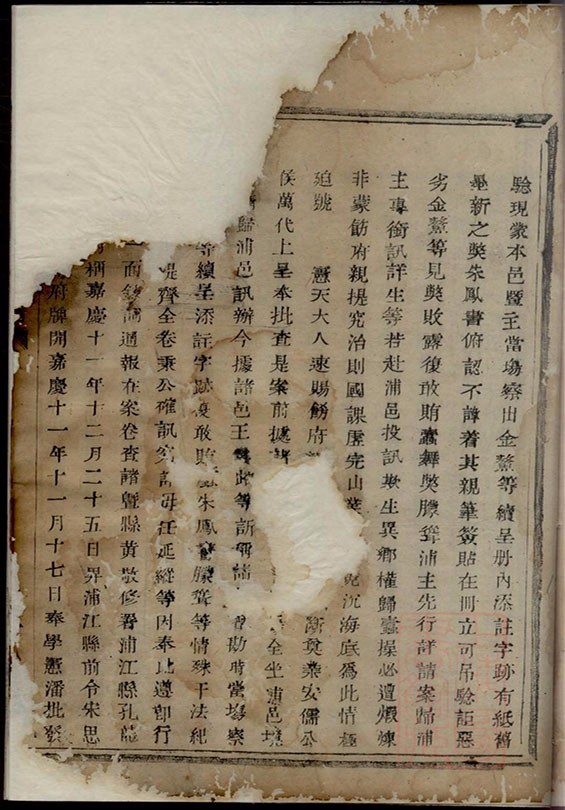 驗現蒙本邑暨主當塲察出金鰲等續呈册内添註字跡有紙舊
墨新之獘朱鳳書俯認不諱着其親筆簽貼在冊立可吊驗詎惡
劣金鰲等見獘敗露復敢賄蠹舞獘朦聳浦主先行詳請案歸浦
主專銜訊詳生等若赴浦邑投訊欺生異鄉權歸蠹操必遭煅煉
非蒙飭府親提究治則國課歷完山 沉海底爲此情極
迫號 憲天大人速賜飭府 斷奠業安儒公
侯萬代上呈奉批查是案前據 全坐浦邑境
歸浦邑訊辦今據諸邑王 此等訴 勘時當塲察
等續呈添註字跡復敢賄 朱鳳 朦聳等情殊干法紀
提齊全卷秉公確訊究詳毋任延縱等因奉此遵即行
通報在案卷查諸暨縣黄敬修署浦江縣孔
嘉慶十一年十二月二十五日昇浦江縣前令宋思
府牌開嘉慶十一年十一月十七日奉學憲潘批發